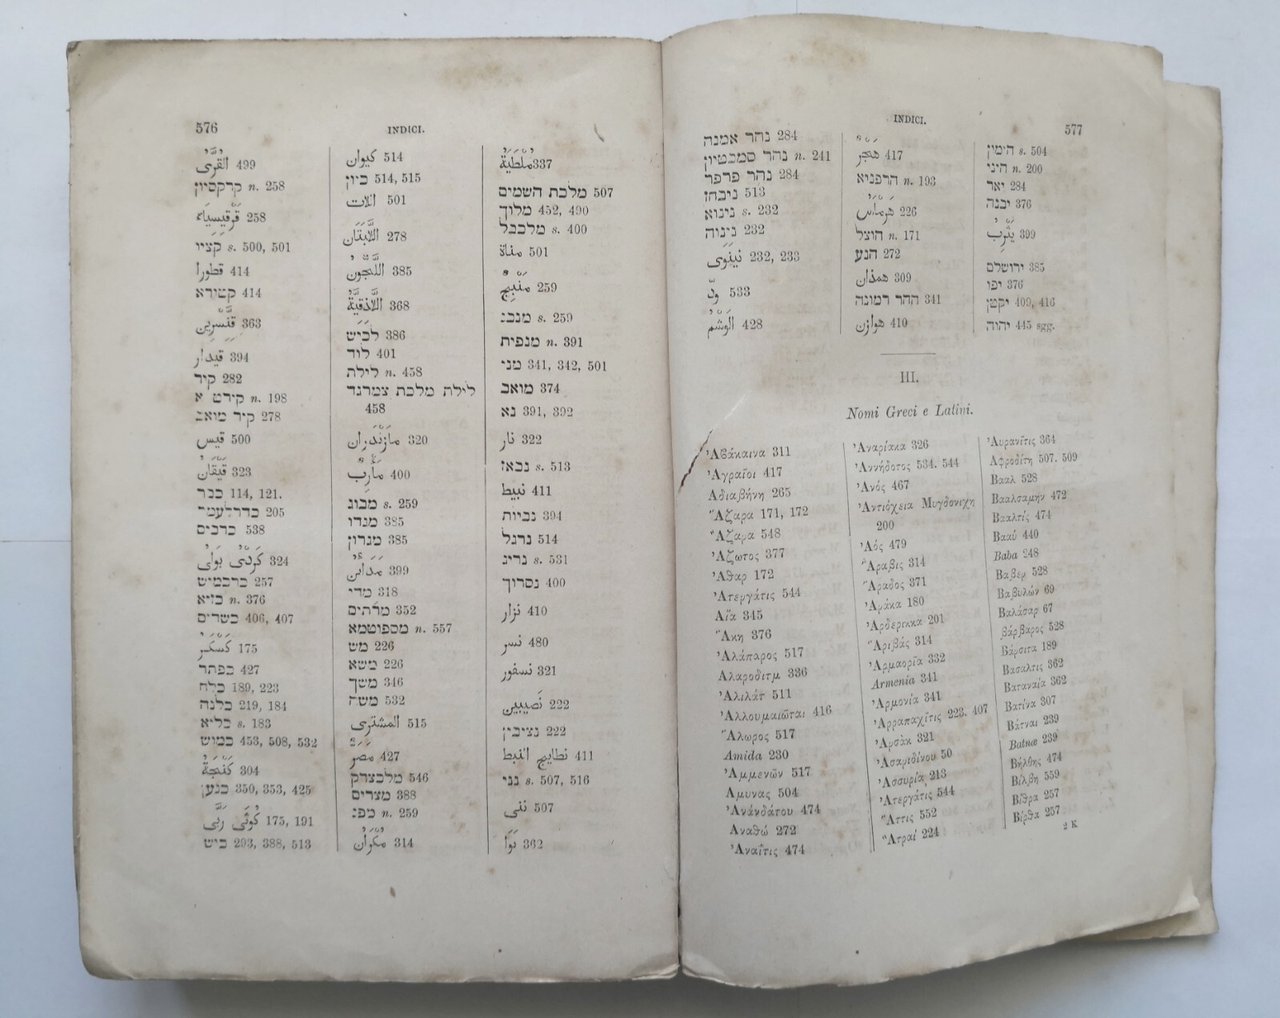 576
INDICI.
القُرَى 499
קרקסיון n. 258
قرقيسياء 258
קציו s. 500, 501
قطورا 414
קטורא 414
قنّسرين 363
قيدار 394
קיר 282
n. 198
קיר מואב 278
قيس 500
قيقان 323
ככר 114, 121.
כדרלעמר 205
כרכים 538
324
כרכמיש 257
כזיא n. 376
כשדים 406, 407
كسكر 175
כפתר 427
כלח 189, 223
כלנה 219, 184
כליא s. 183
כמוש 453, 508, 532
304
כנען 350, 353, 425
كوثى ربّى 175, 191
כוש 293, 388, 513
كيوان 514
כיון 514, 515
اللات 501
278
اللجّون 385
اللاذقيّة 368
לכיש 386
לוד 401
לילת n. 458
לילת מלכת צמרגד
458
مازندران 320
مأرب 400
מבוג s. 259
מגדו 385
מגדון 385
مدائن 399
מדי 318
352
מספוטמא n. 557
מש 226
משא 226
משך 346
משה 532
المشترى 515
مصر 427
מלכצדק 546
מצרים 388
מפג n. 259
مكران 314
ملطية 337
מלכת השמים 507
מלוך 452, 490
מלכבל s. 400
مناة 501
منبج 259
מנבג s. 259
מנפית n. 391
מני 341, 342, 501
מואב 374
נא 391, 392
نار 322
נבאז s. 513
نبيط 411
נביות 394
נרגל 514
נריג s. 531
נסרוך 400
نزار 410
نسر 480
نسفور 321
نصيبين 222
נציבין 222
411
נני s. 507, 516
ننى 507
نوا 362
INDICI.
577
נהר אמנה 284
נהר סמבטיון n. 241
נהר פרפר 284
ניבחז 513
נינוא s. 232
נינוה 232
نينوى 232, 233
ودّ 533
الوشم 428
هجر 417
הרפניא n. 193
هرماس 226
הוצל n. 171
הנע 272
همذان 309
ההר רמונה 341
هوازن 410
הימין s. 504
היני n. 200
יאר 284
יבנה 376
يثرب 399
ירושלם 385
יפו 376
יקטן 409, 416
יהוה 445 sgg.
III.
Nomi Greci e Latini.
Ἀβάκαινα 311
Ἀγραῖοι 417
Ἀδιαβήνη 265
Ἄζαρα 171, 172
Ἄζαρα 548
Ἄζωτος 377
Ἀθαρ 172
Ἀτεργάτις 544
Αἴα 345
Ἄκη 376
Ἀλάπαρος 517
Αλαροδιτμ 336
Ἀλιλάτ 511
Ἀλλουμαιῶται 416
Ἄλωρος 517
Amida 230
Ἀμμενών 517
Αμυνας 504
Ἀνάνδάτου 474
Αναθώ 272
Ἀναΐτις 474
Ἀναρίακα 326
Ἀννήδοτος 534. 544
Ἀνός 467
Ἀντιόχεια Μυγδονιχη
200
Ἀός 479
Ἄραβις 314
Ἄραδος 371
Ἀράκα 180
Ἀρδερικκα 201
Ἀριβάς 314
Ἀρμαορῖα 332
Armenia 341
Ἀρμονία 341
Ἀρραπαχῖτις 223, 407
Ἀρσὰκ 321
Ἀσαριδίνου 50
Ἀσσυρία 213
Ἀτεργάτις 544
Ἄττις 552
Ἄτραί 224
Ἀυρανῖτις 364
Αφροδίτη 507. 509
Βααλ 528
Βααλσαμήν 472
Βααλτίς 474
Βααύ 440
Baba 248
Βαβερ 528
Βαβυλών 69
Βαλάσαρ 67
βάρβαρος 528
Βάρσιτα 189
Βασαλτις 362
Βαταναία 362
Βατίνα 307
Βάτναι 239
Batnæ 239
Βήλθης 474
Βίλβη 559
Βίθρα 257
Βίρθα 257
2 K